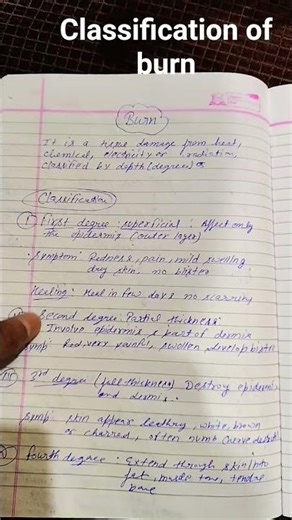 Classification of
burn
Burn
It is a damage from heat,
chemical, electricity or radiation,
classified by depth (degree)
Classification
First degree : superficial : Affect only
the epidermis (outer layer)
Symptom : Redness, pain, mild swelling
dry skin, no blister
Healing : Heal in few days no scarring
Second degree : Partial thickness
Involve epidermis & part of dermis
Symp : Red, very painful, swollen develop blister
III 3rd degree (full thickness) Destroy epidermis
and dermis.
Symp : skin appear leathery, white, brown
or charred, often numb (nerve
fourth degree - Extend through skin into
fat, muscle
bone